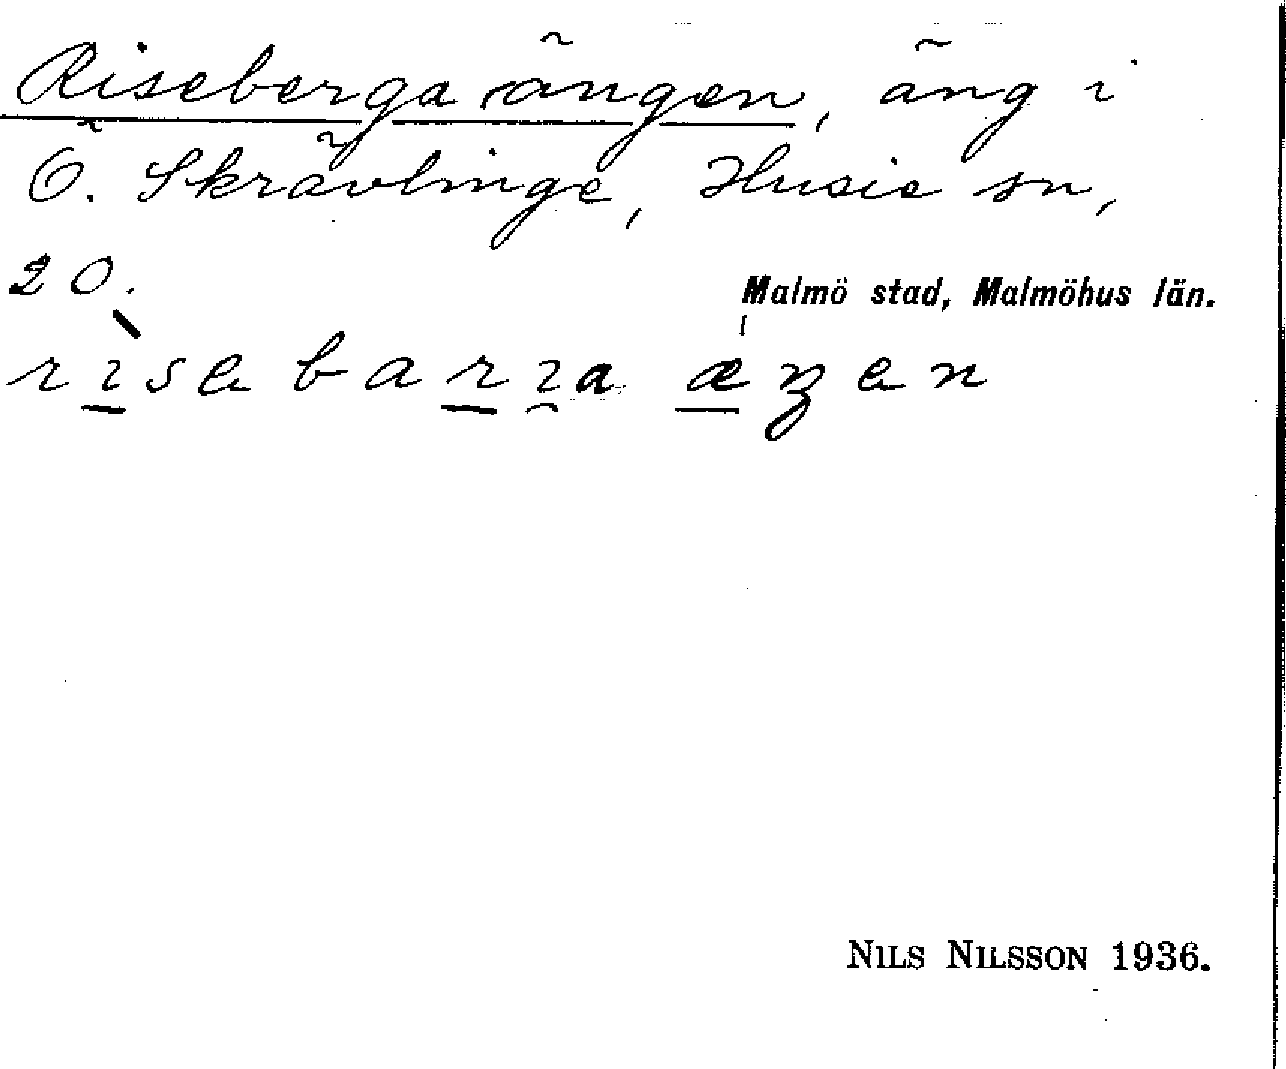 Riseberga ängen, äng i
Ö. Skrävlinge, Husie sn,
20.
Malmö stad, Malmöhus län.
risebarıa æŋen
NILS NILSSON 1936.